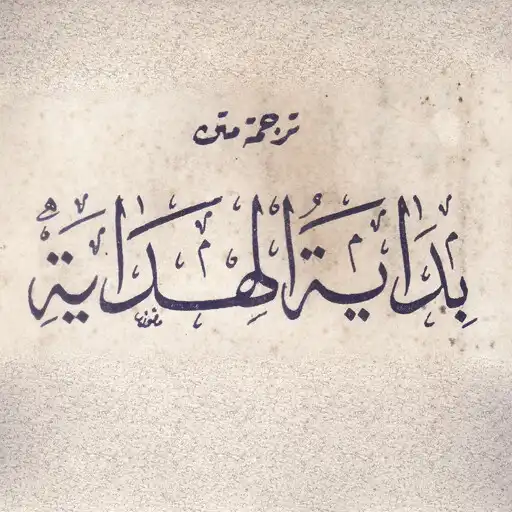 ترجمة متن
بِدَايَةُ الْهِدَايَةِ